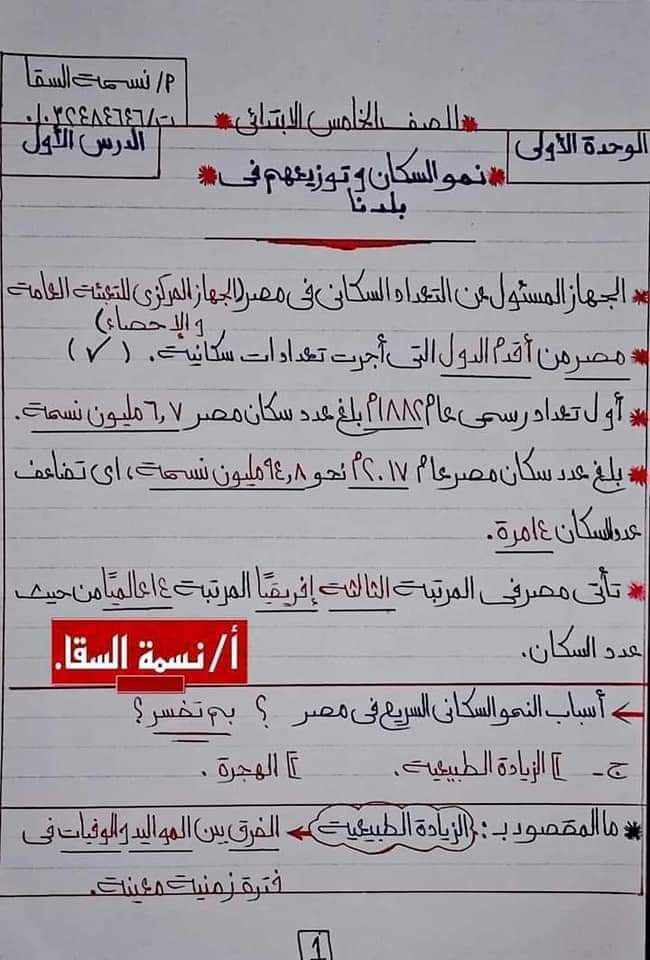 م/ نسمة السقا
ت/ ٠١٠٣٢٤٨٤٦٤٦
* الصف الخامس الابتدائى *
الوحدة الأولى
الدرس الأول
* نمو السكان وتوزيعهم فى *
بلدنا
* الجهاز المسئول عن التعداد السكانى فى مصر (الجهاز المركزى للتعبئة العامة
والإحصاء)
* مصر من أقدم الدول التى أجرت تعدادات سكانية. (✓)
* أول تعداد رسمى عام ١٨٨٢م بلغ عدد سكان مصر ٦,٧ مليون نسمة.
* بلغ عدد سكان مصر عام ٢٠١٧م نحو ٩٤,٨ مليون نسمة، اى تضاعف
عدد السكان ١٤ مرة.
* تأتى مصر فى المرتبة الثالثة إفريقيًا المرتبة ١٤ عالميًا من حيث
عدد السكان.
أ/ نسمة السقا.
← أسباب النمو السكانى السريع فى مصر ؟ بم تفسر؟
ج- ١] الزيادة الطبيعية. ٢] الهجرة.
* ما المقصود بـ: الزيادة الطبيعية ← الفرق بين المواليد والوفيات فى
فترة زمنية معينة.
1